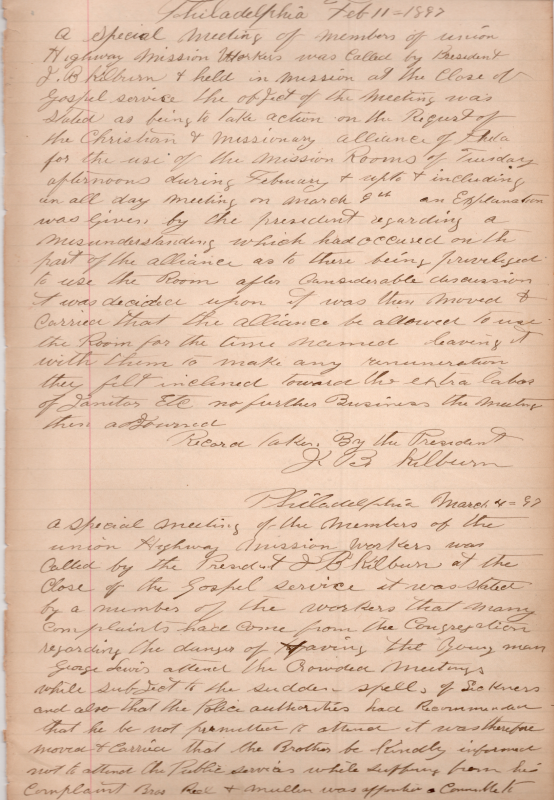 Philadelphia Feb 11=1897
a special meeting of members of union
Highway mission Workers was called by President
J. B Kilburn & held in mission at the close of
Gospel service the object of the meeting was
stated as being to take action on the Request of
the Christian & missionary alliance of Phila
for the use of the mission Rooms of Tuesday
afternoons during February & upto & including
an all day meeting on march 9th an Explanation
was given by the president regarding a
misunderstanding which had occured on the
part of the alliance as to there being priviledged
to use the Room after Considerable discussion
it was decided upon it was then moved &
Carried that the alliance be allowed to use
the Room for the time named leaving it
with them to make any renumeration
they felt inclined toward the extra labor
of Janitor Etc no further Business the meeting
then adjourned
Record taken By the President
J. B Kilburn
Philadelphia March 4=97
a special meeting of the members of the
union Highway mission workers was
Called by the President J B Kilburn at the
Close of the Gospel service it was stated
by a number of the workers that many
Complaints had come from the Congregation
regarding the danger of Having the Young man
George Lewis attend the Crowded meetings
while subject to the sudden spells of Sickness
and also that the Police authorities had Recommended
that he be not permitted to attend it was therefore
moved & Carried that the Brother be Kindly informed
not to attend the Public services while suffering from his
Complaint Bros & mullen was a Committee